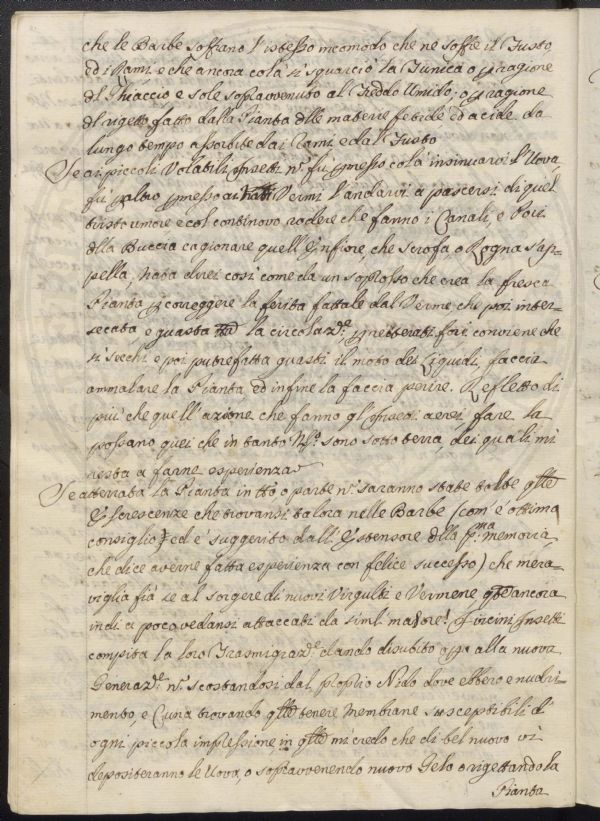 che le Barbe soffrano l'istesso incomodo che ne soffre il Fusto,
ed i Rami e che ancora colà si squarciò la Tunica o p ragione
del Ghiaccio e Sole sopravvenuto al Freddo Umido: o p ragione
del rigetto fatto dalla Pianta delle materie fetide ed acide da
lungo tempo assorbite dai Rami e dal Fusto
Se ai piccoli Volatili Insetti n. fu pmesso colà insinuarvi l'Uova
fu p altro pmesso ai Vermi l'andarvi a pascersi di quel
tristo umore e col continovo rodere che fanno i Canali e Pori
della Buccia cagionare quell'Enfiore, che scrofa, o Rogna s'ap-
pella, nata direi così come da un soprosso che crea la fresca
Pianta p coreggere la ferita fattale dal Verme che poi inter-
secata, e guasta la circolaz.e p fori conviene che
si secchi e poi putrefatta guasti il moto dei Liquidi, faccia
ammalare la Pianta, ed infine la faccia perire. Refletto di
più che quell'azione che fanno gl'Insetti aerei, fare la
possano quei che in tanto N.o sono sotto terra, dei quali mi
resta a farne esperienza
Se atterrata la Pianta in tto o parte n. saranno state tolte qlle
Escrescenze che trovansi talora nelle Barbe (com'è ottimo
consiglio ed è suggerito dall'Estensore della p.ma memoria,
che dice averne fatta esperienza con felice successo) che mera-
viglia fia se al sorgere di nuovi Virgulti e Vermene qste ancora
indi a poco vedansi attaccati da simil malore! I vicini Insetti
compita la loro Trasmigraz.e dando di subito opa alla nuova
Generaz.e n. scostandosi dal proprio Nido dove ebbero e nudri-
mento, e Cuna trovando qlle tenere Membrane susceptibili di
ogni piccola impressione in qlle mi credo che di bel nuovo vi
depositeranno le Uova, o sopravvenendo nuovo Gelo o rigettando la
Pianta